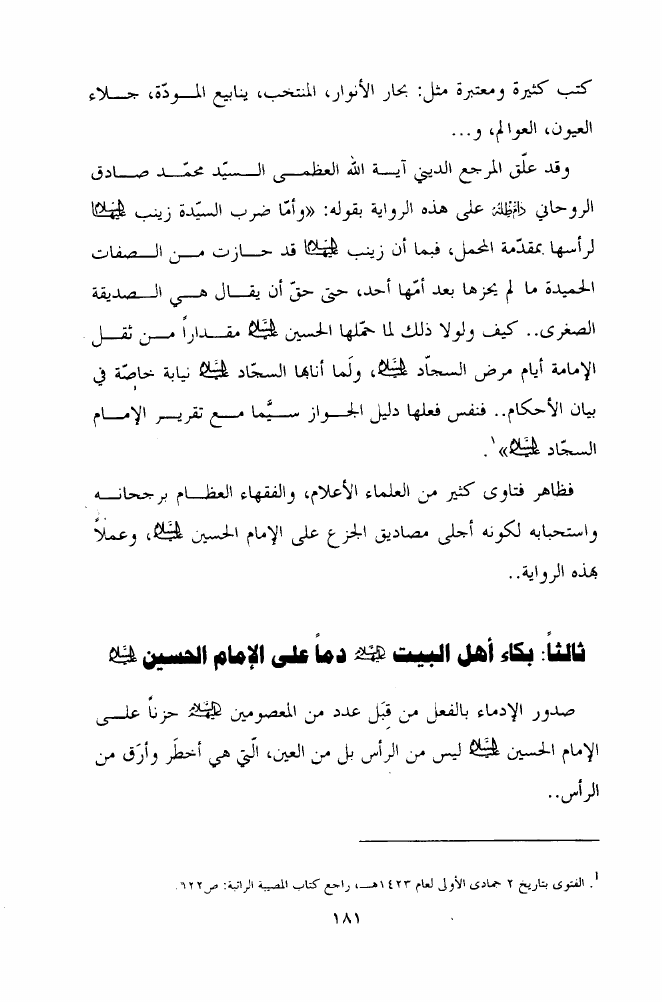 كتب كثيرة ومعتبرة مثل: بحار الأنوار، المنتخب، ينابيع المـــودّة، جـــلاء
العيون، العوالم، و...
وقد علّق المرجع الديني آيـــة الله العظمـــى الـــسيّد محمّـــد صـــادق
الروحاني دام ظله على هذه الرواية بقوله: «وأمّا ضرب السيّدة زينب عليها السلام
لرأسها بمقدّمة المحمل، فبما أن زينب عليها السلام قد حـــازت مـــن الـــصفات
الحميدة ما لم يحزها بعد أمّها أحد، حتى حقّ أن يقـــال هـــي الـــصديقة
الصغرى.. كيف ولولا ذلك لما حمّلها الحسين عليه السلام مقـــداراً مـــن ثقـــل
الإمامة أيام مرض السجاّد عليه السلام، ولَما أنابها السجّاد عليه السلام نيابة خاصّة في
بيان الأحكام.. فنفس فعلها دليل الجـــواز ســـيَّما مـــع تقريـــر الإمـــام
السجّاد عليه السلام»¹.
فظاهر فتاوى كثير من العلماء الأعلام، والفقهاء العظـــام برجحانـــه
واستحبابه لكونه أجلى مصاديق الجزع على الإمام الحسين عليه السلام، وعملاً
بهذه الرواية..
ثالثاً: بكاء أهل البيت عليهم السلام دماً على الإمام الحسين عليه السلام
صدور الإدماء بالفعل من قبَل عدد من المعصومين عليهم السلام حزناً علـــى
الإمام الحسين عليه السلام ليس من الرأس بل من العين، الّتي هي أخطَر وأرَق من
الرأس..
¹. الفتوى بتاريخ ٢ جمادى الأولى لعام ١٤٢٣هـــ، راجع كتاب المصيبة الراتبة: ص٦٢٢.
١٨١